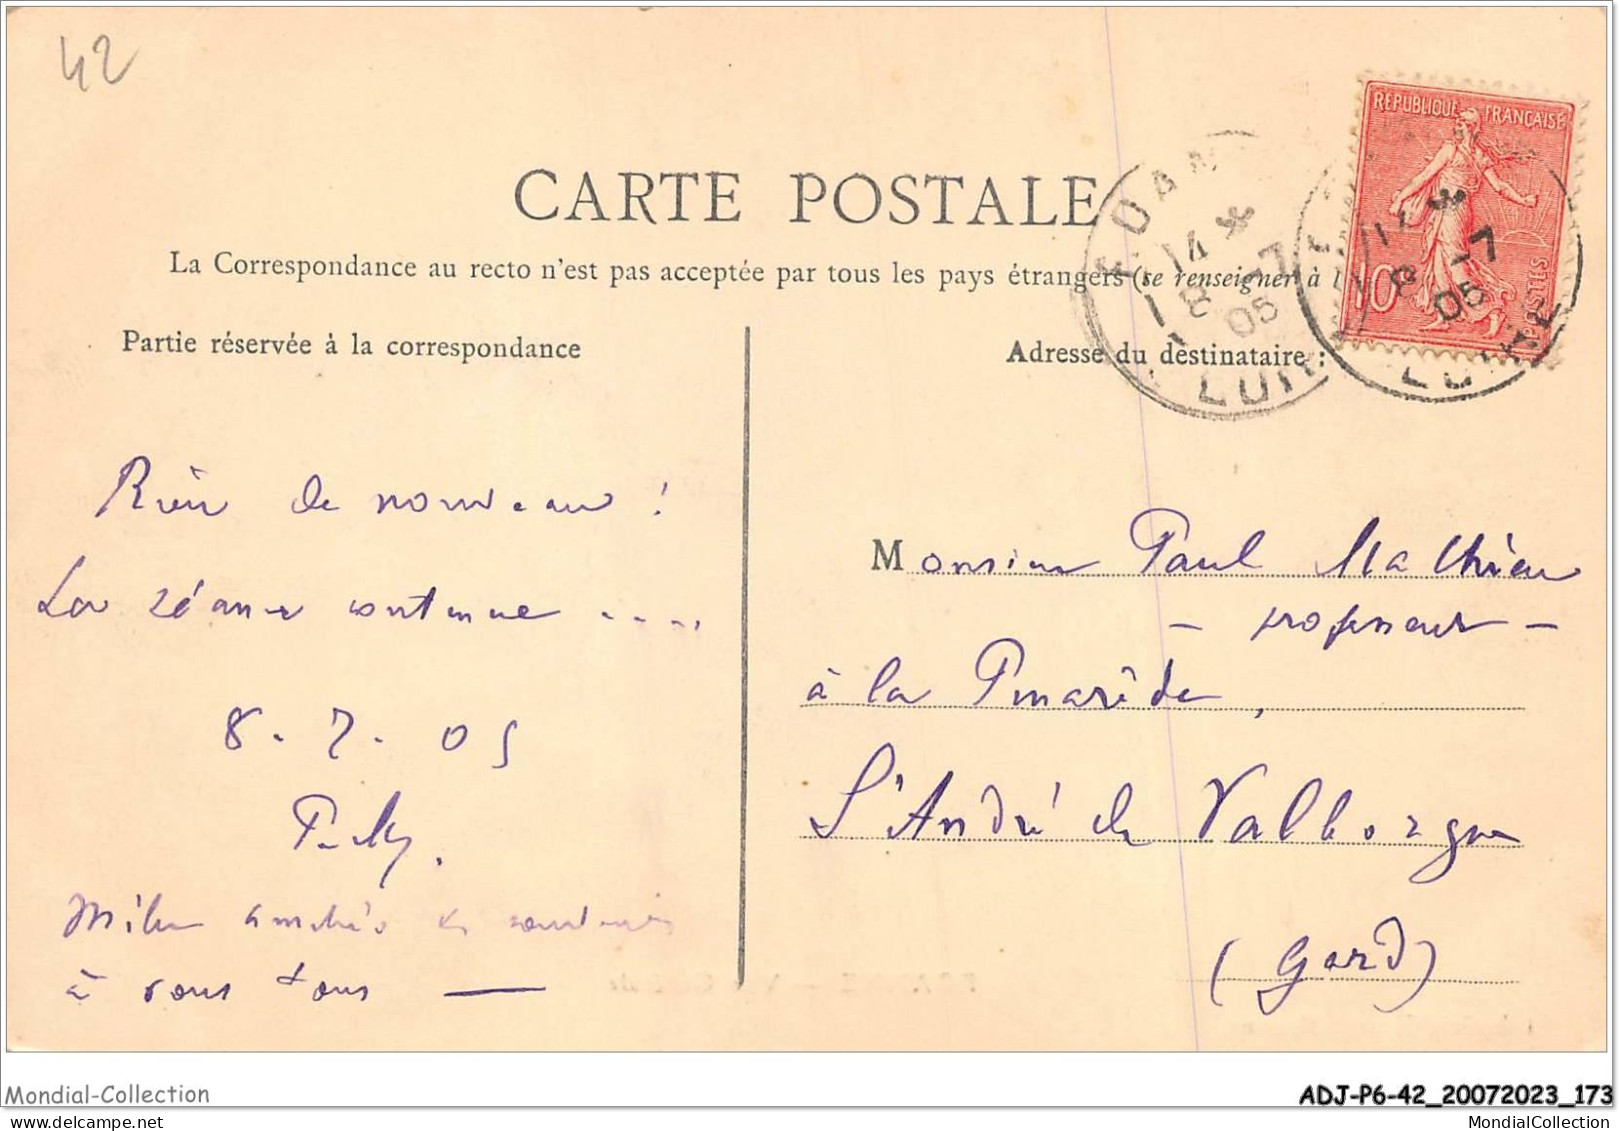 42
CARTE POSTALE
La Correspondance au recto n'est pas acceptée par tous les pays étrangers (se renseigner à l
RÉPUBLIQUE FRANÇAISE
10
POSTES
14
8 -7
05
LOIRE
14
8 -7
05
LOIRE
Partie réservée à la correspondance
Adresse du destinataire :
Rien de nouveau !
La séance continue ....
8. 7. 05
Mille amitiés
à vous tous —
Monsieur Paul Mathieu
- professeur -
à la Pmarède,
St André de Valborgne
(Gard)
Mondial-Collection
ADJ-P6-42_20072023_173
MondialCollection